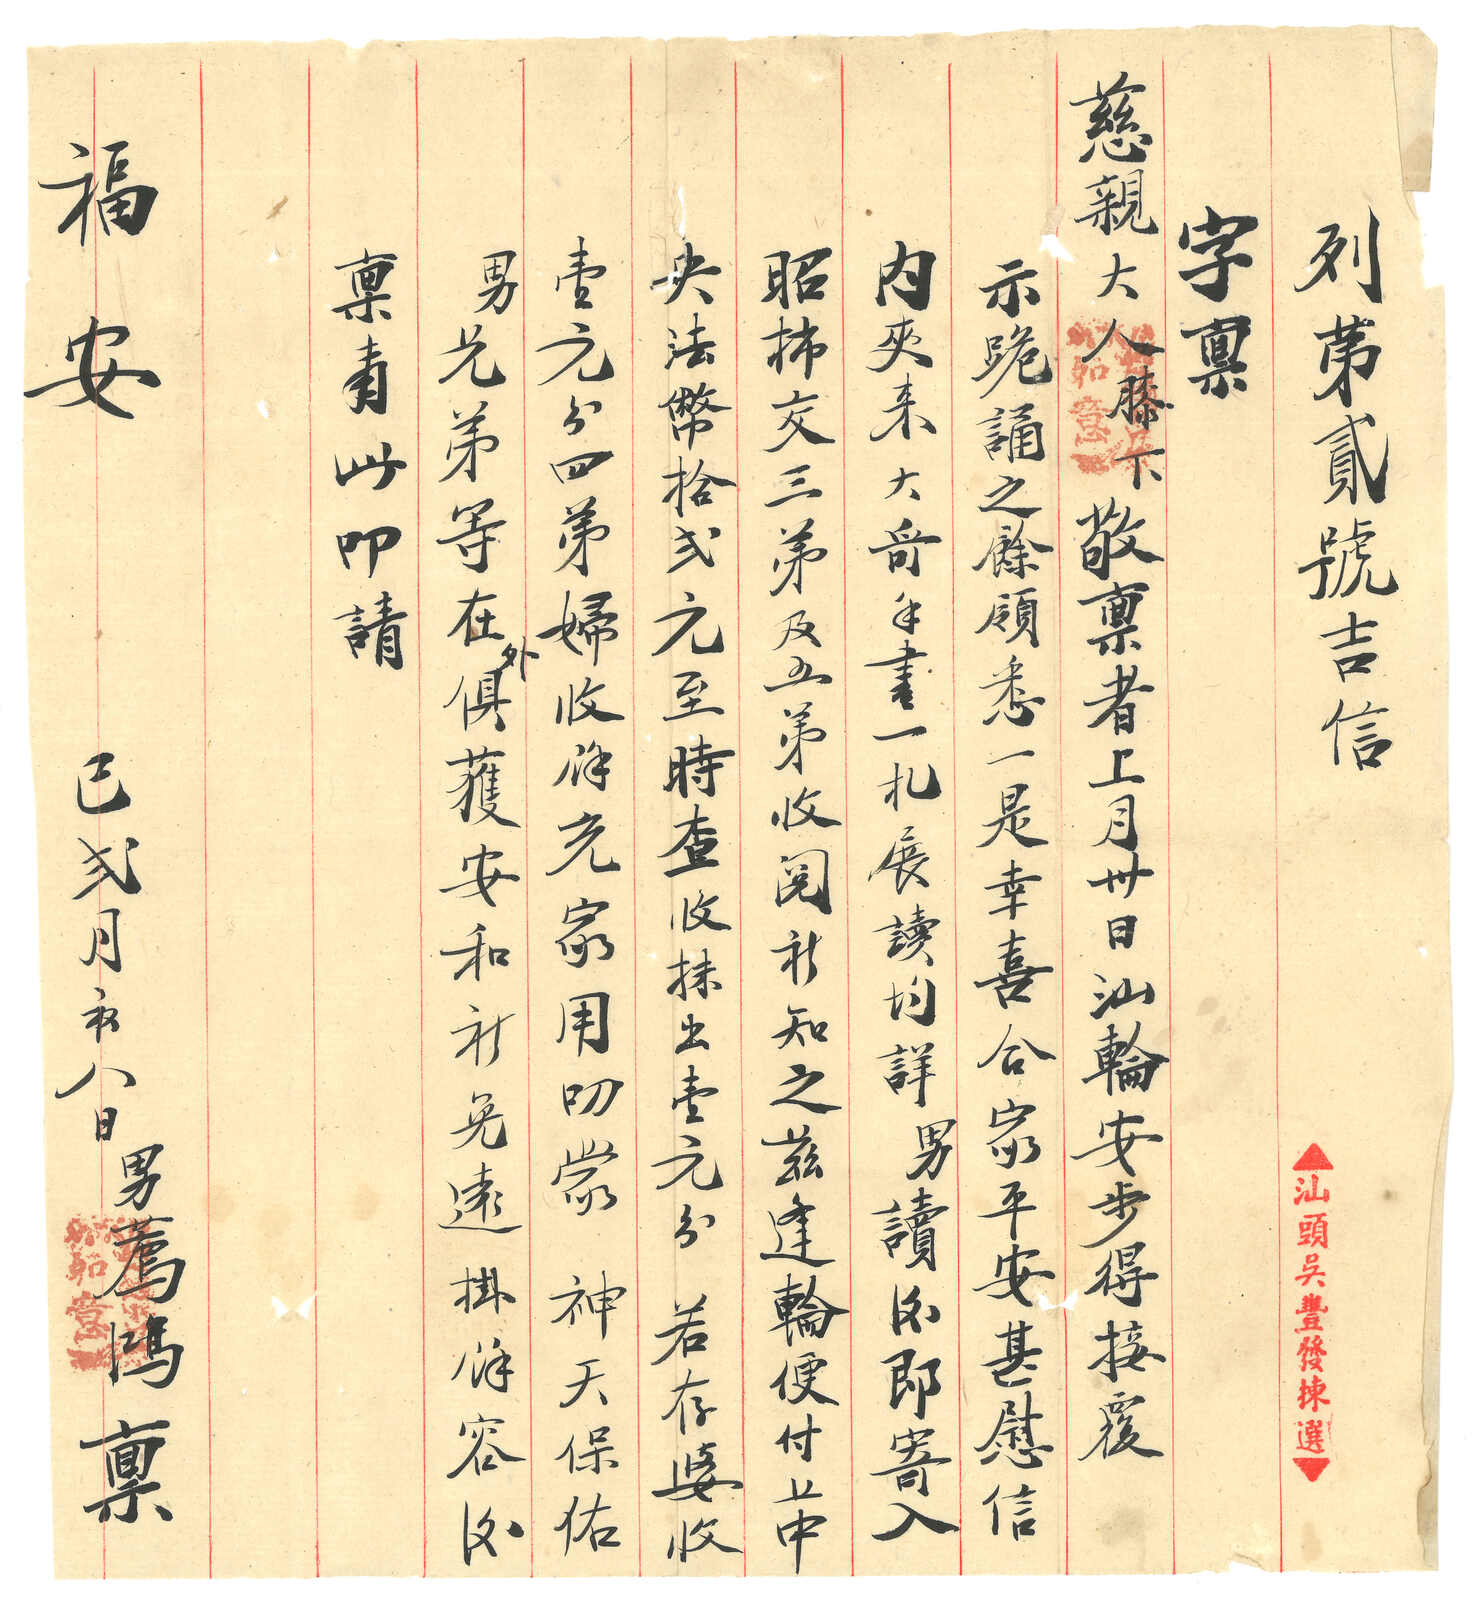 列第貳號吉信
汕頭吳豐發揀選
字稟
慈親大人膝下敬稟者上月卅日汕輪安步得接覆
示跪誦之餘領悉一是幸喜合家平安甚慰信
内夾来大哥手書一札展讀均詳男讀後即寄入
昭柿交三弟及五弟收閱祈知之茲逢輪便付上中
央法幣拾弍元至時查收抹出壹元分 若存婆收
壹元分四弟婦收餘充家用叨蒙 神天保佑
男兄弟等在外俱獲安和祈免遠掛餘容後
稟肅此叩請
福安
己弍月初八日 男薦鴻稟